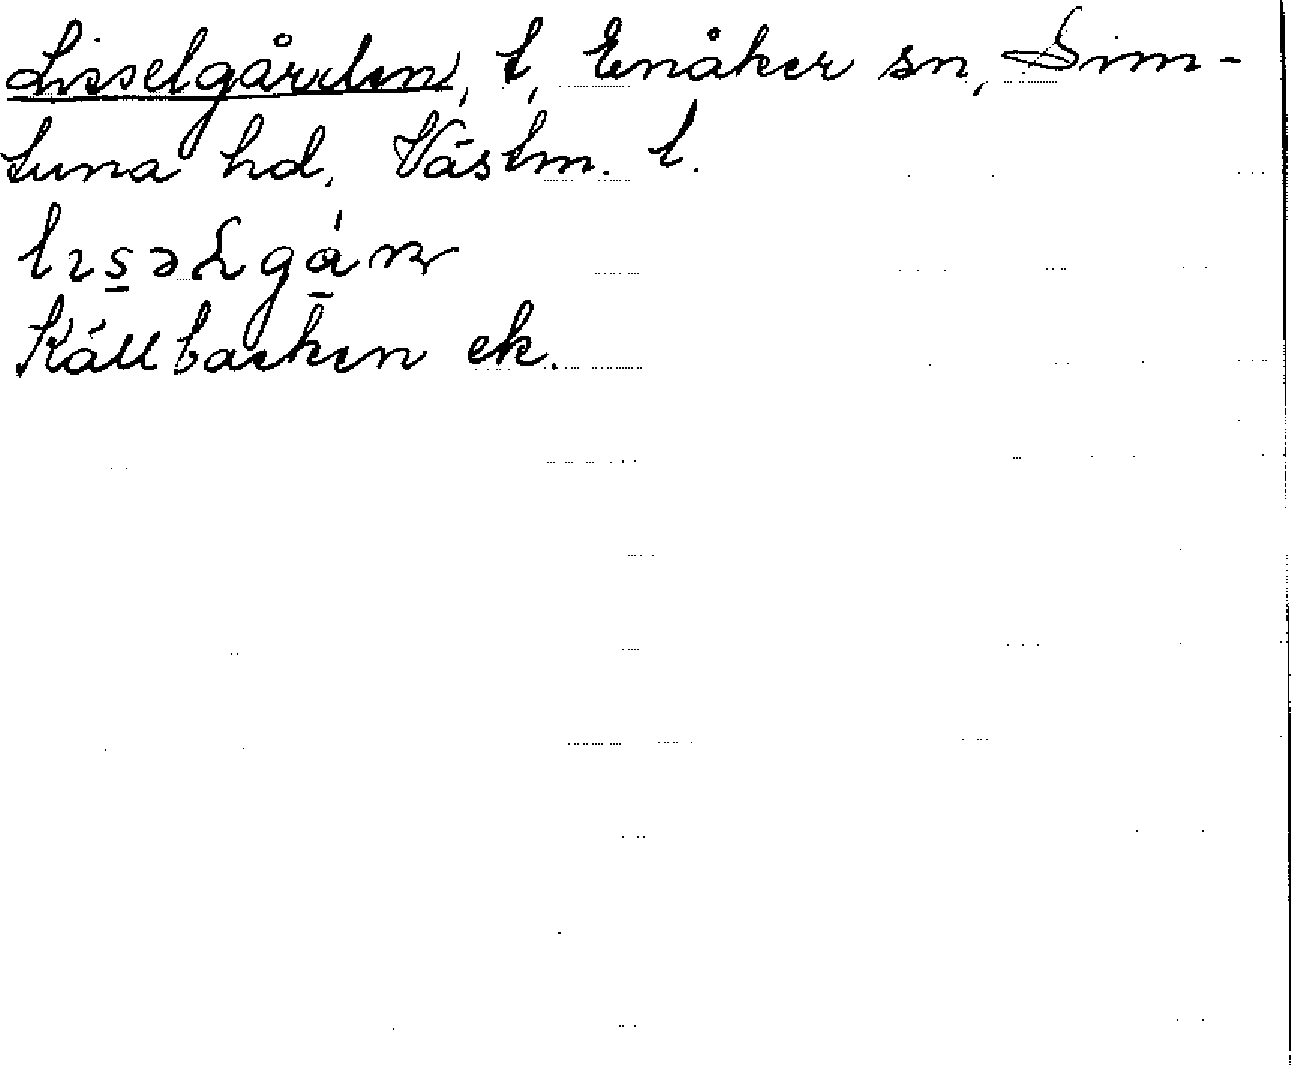 Lisselgården, t, Enåker sn, Sim-
tuna hd, Västm. l.
Källbacken ek.